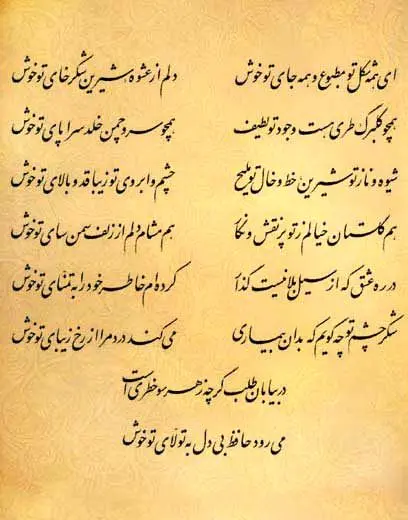 ای همه شکل تو مطبوع و همه جای تو خوش
دلم از عشوه شیرین شکرخای تو خوش
همچو گلبرگ طری هست وجود تو لطیف
همچو سرو چمن خلد سراپای تو خوش
شیوه و ناز تو شیرین خط و خال تو ملیح
چشم و ابروی تو زیبا قد و بالای تو خوش
هم گلستان خیالم ز تو پر نقش و نگار
هم مشام دلم از زلف سمن سای تو خوش
در ره عشق که از سیل بلا نیست گذار
کرده‌ام خاطر خود را به تمنای تو خوش
شکر چشم تو چه گویم که بدان بیماری
می کند درد مرا از رخ زیبای تو خوش
در بیابان طلب گرچه ز هر سو خطری است
می رود حافظ بی دل به تولّای تو خوش